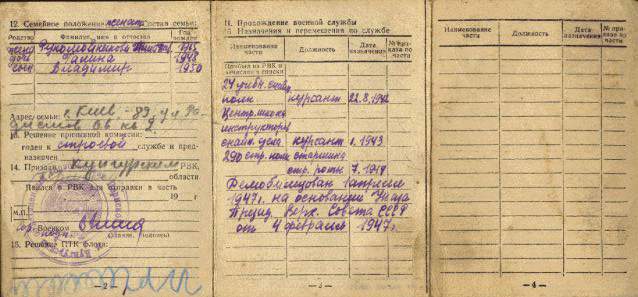 12. Семейное положение женат Состав семьи:
Родство Фамилия, имя и отчество Год рожден.
жена 1925
дочь Галина 1948
сын Владимир 1950
Адрес семьи: г. Киев-99, ул.
13. Решение призывной комиссии:
годен к строевой службе и пред-
назначен
14. Призван Кунгурским РВК,
области
Явился в РВК для отправки в часть
19 г.
М.П.
Военком
15. Решение ПТК
— 2 —
II. Прохождение военной службы
16. Назначения и перемещения по службе
Наименование части Должность Дата назначения № приказа по части
Прибыл из РВК и зачислен в списки
24 учебн. снайп.
полк курсант 22.8.1942
Центр. школа
инструкторов
снайп. дела курсант 1.1943
290 стр. полк старшина
стр. роты 7.1944
Демобилизован 1 апреля
1947г. на основании Указа
През. Верх. Совета СССР
от 4 февраля 1947г.
— 3 —
Наименование части Должность Дата назначения № приказа по части
— 4 —